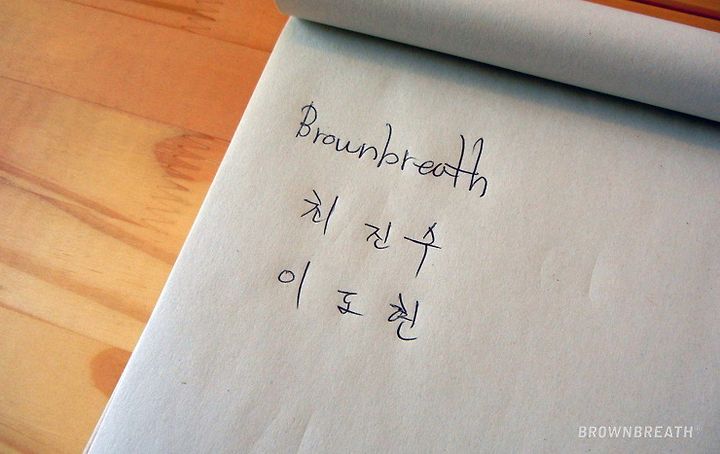 Brownbreath
최 진수
이 도현
BROWNBREATH